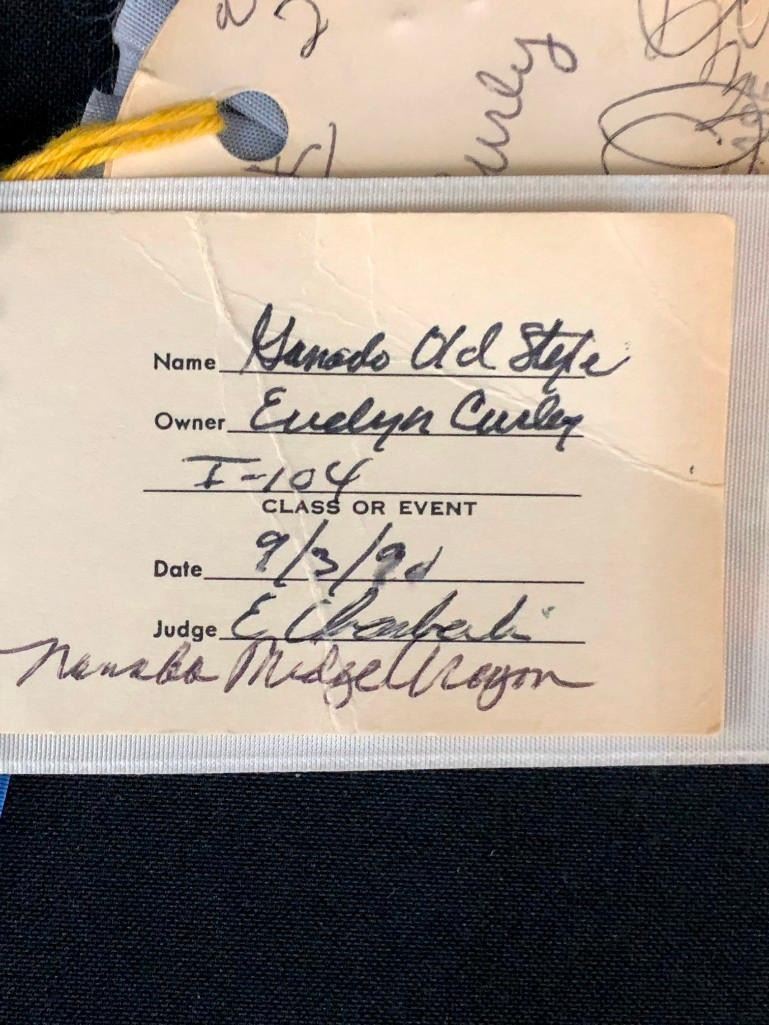 urly
Name Ganado Old Style
Owner Evelyn Curley
I-104
CLASS OR EVENT
Date 9/3/90
Judge E.
Nanaba Midge